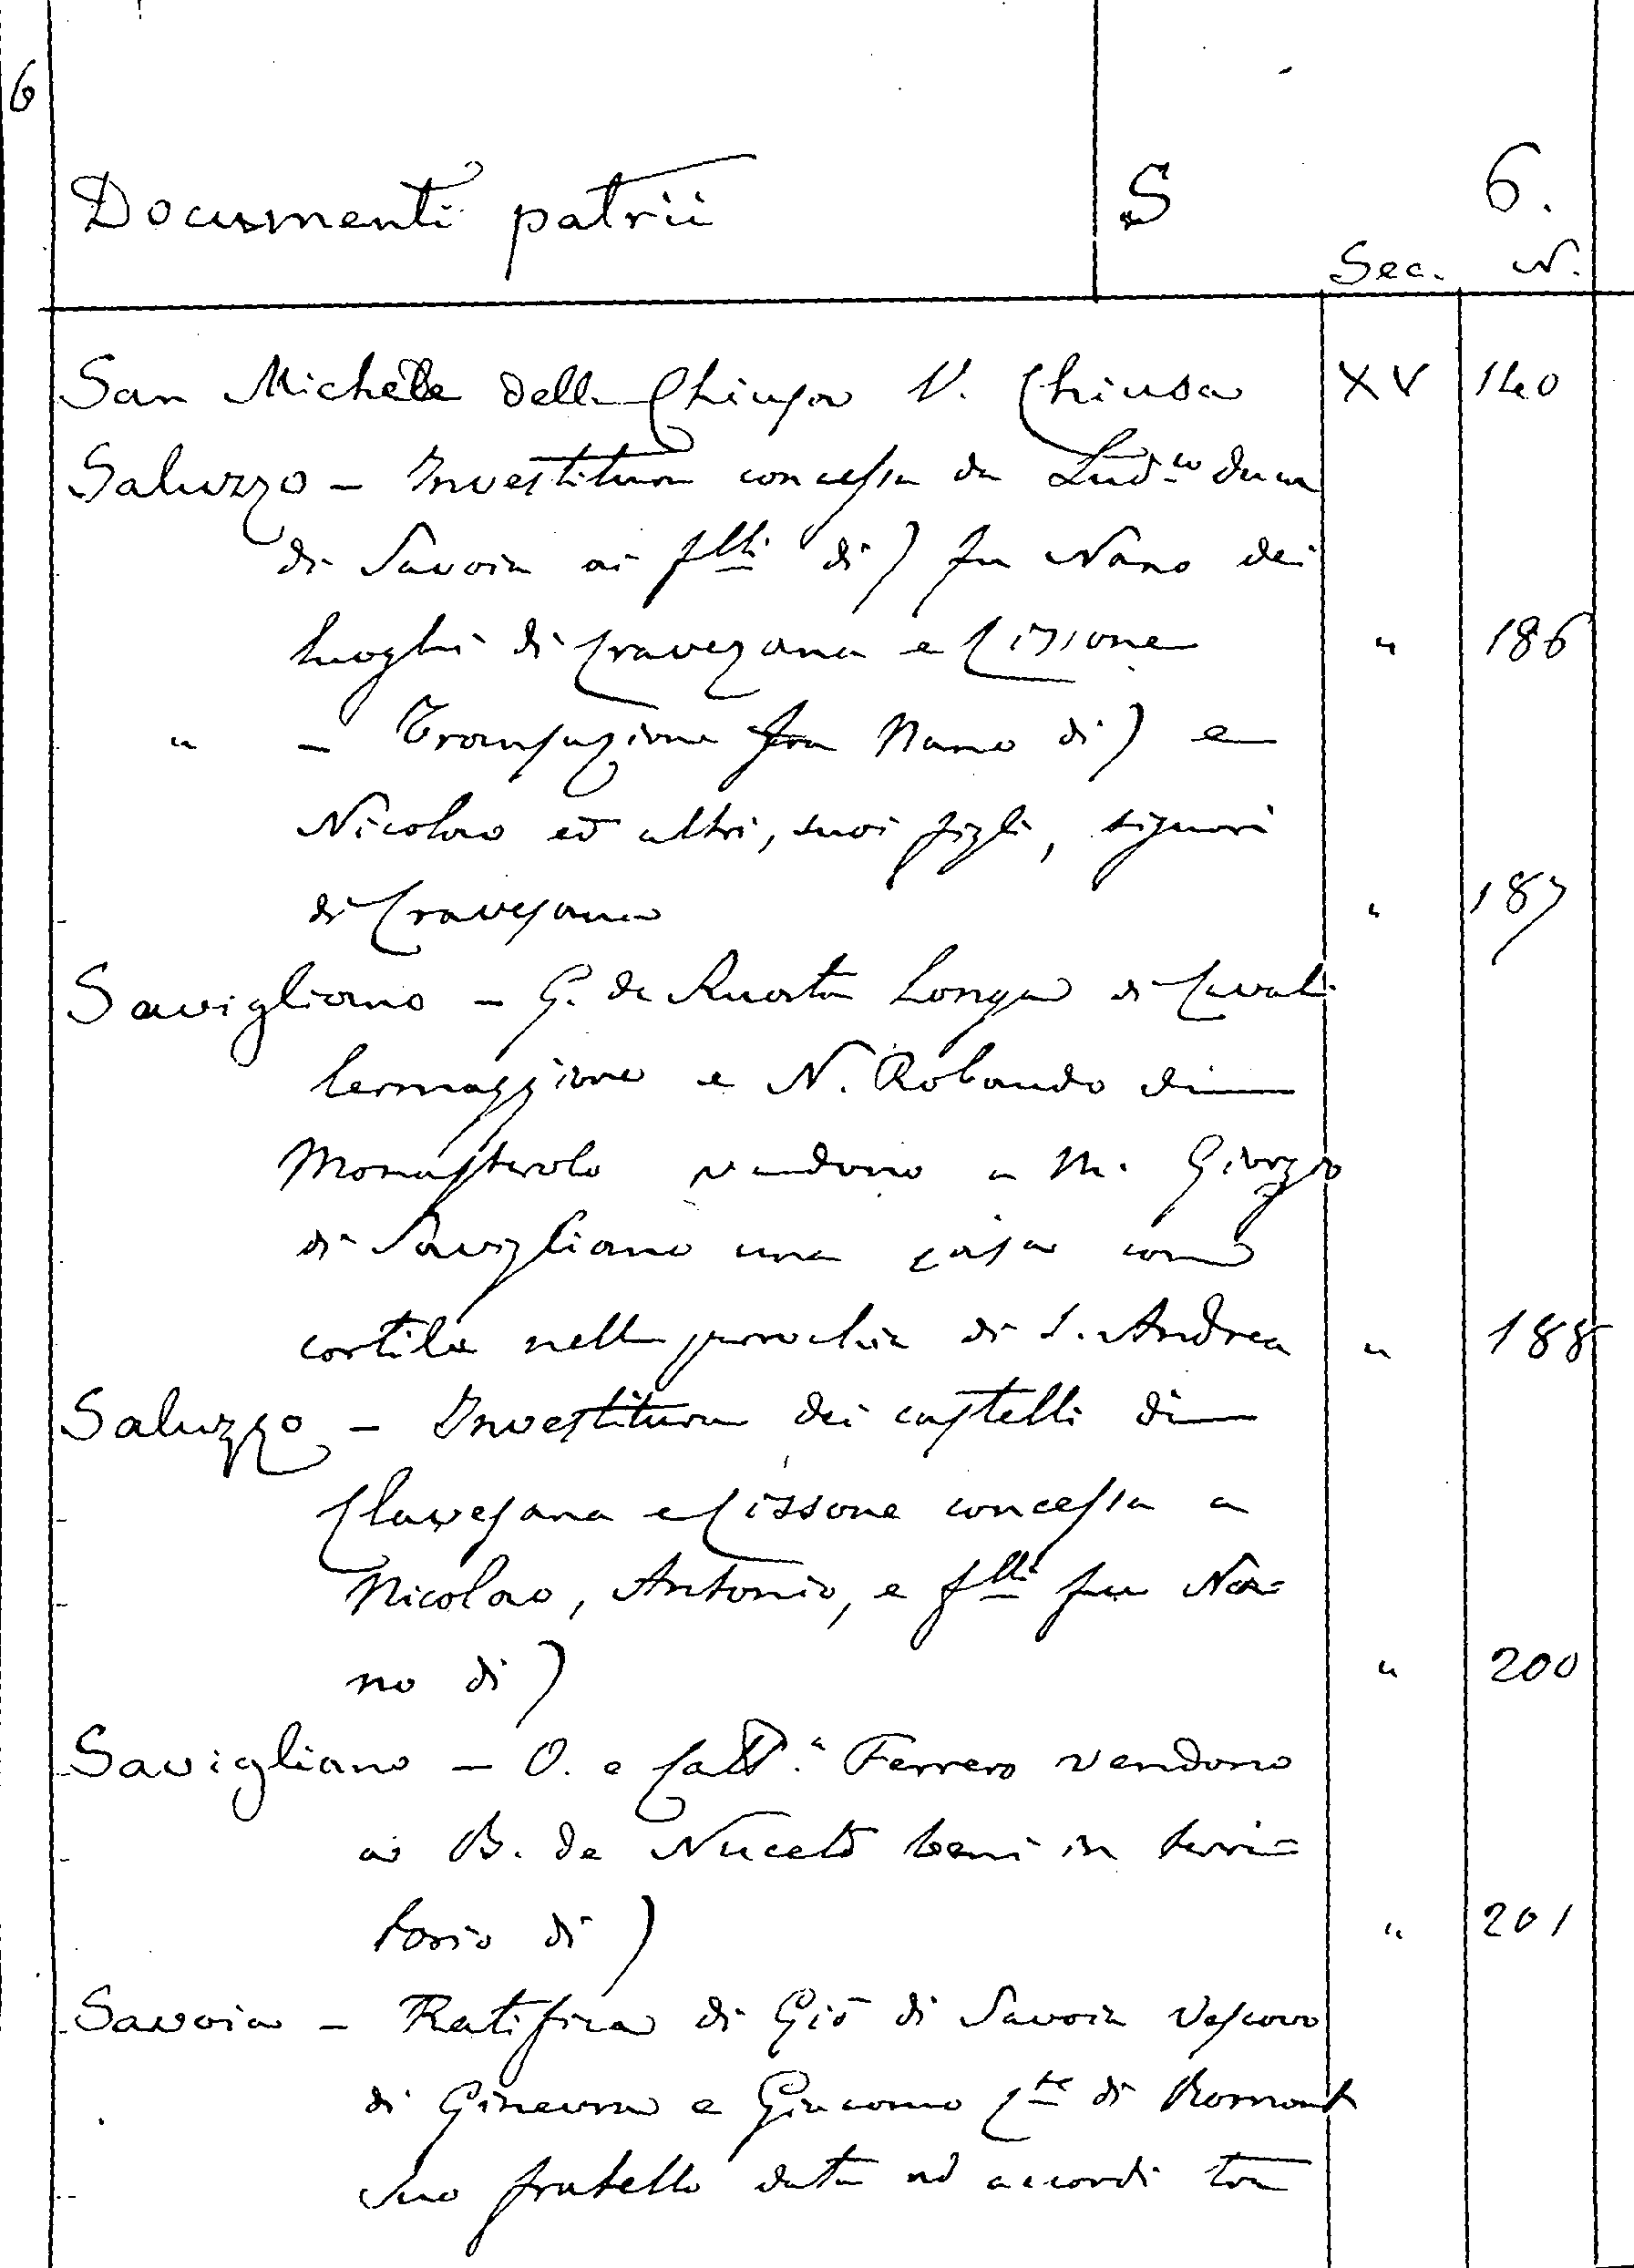 6
Documenti patrii S 6.
Sec. N.
San Michele della Chiusa V. Chiusa XV 140
Saluzzo – Investitura concessa da Lud.co duca
di Savoia ai f.lli di) fu Nano dei
luoghi di Cravezana e Cissone " 186
" – Transazione fra Nano di) e
Nicolao ed altri, suoi figli, signori
di Cravesana " 187
Savigliano – G. de Ruata Longa di Caval
lermaggiore e N. Rolando di
Monasterolo vendono a M. Giorgio
di Savigliano una casa con
cortile nella parochia di S. Andrea " 188
Saluzzo – Investitura dei castelli di
Clavesana e Cissone concessa a
Nicolao, Antonio, e f.lli fu Na=
no di) " 200
Savigliano – O. e Catt.a Ferrero vendono
a B. de Nuceto beni in terri=
torio di) " 201
Savoia – Ratifica di Gio di Savoia Vescovo
di Ginevra e Giacomo C.te di Romont
suo fratello data ad accordi tra